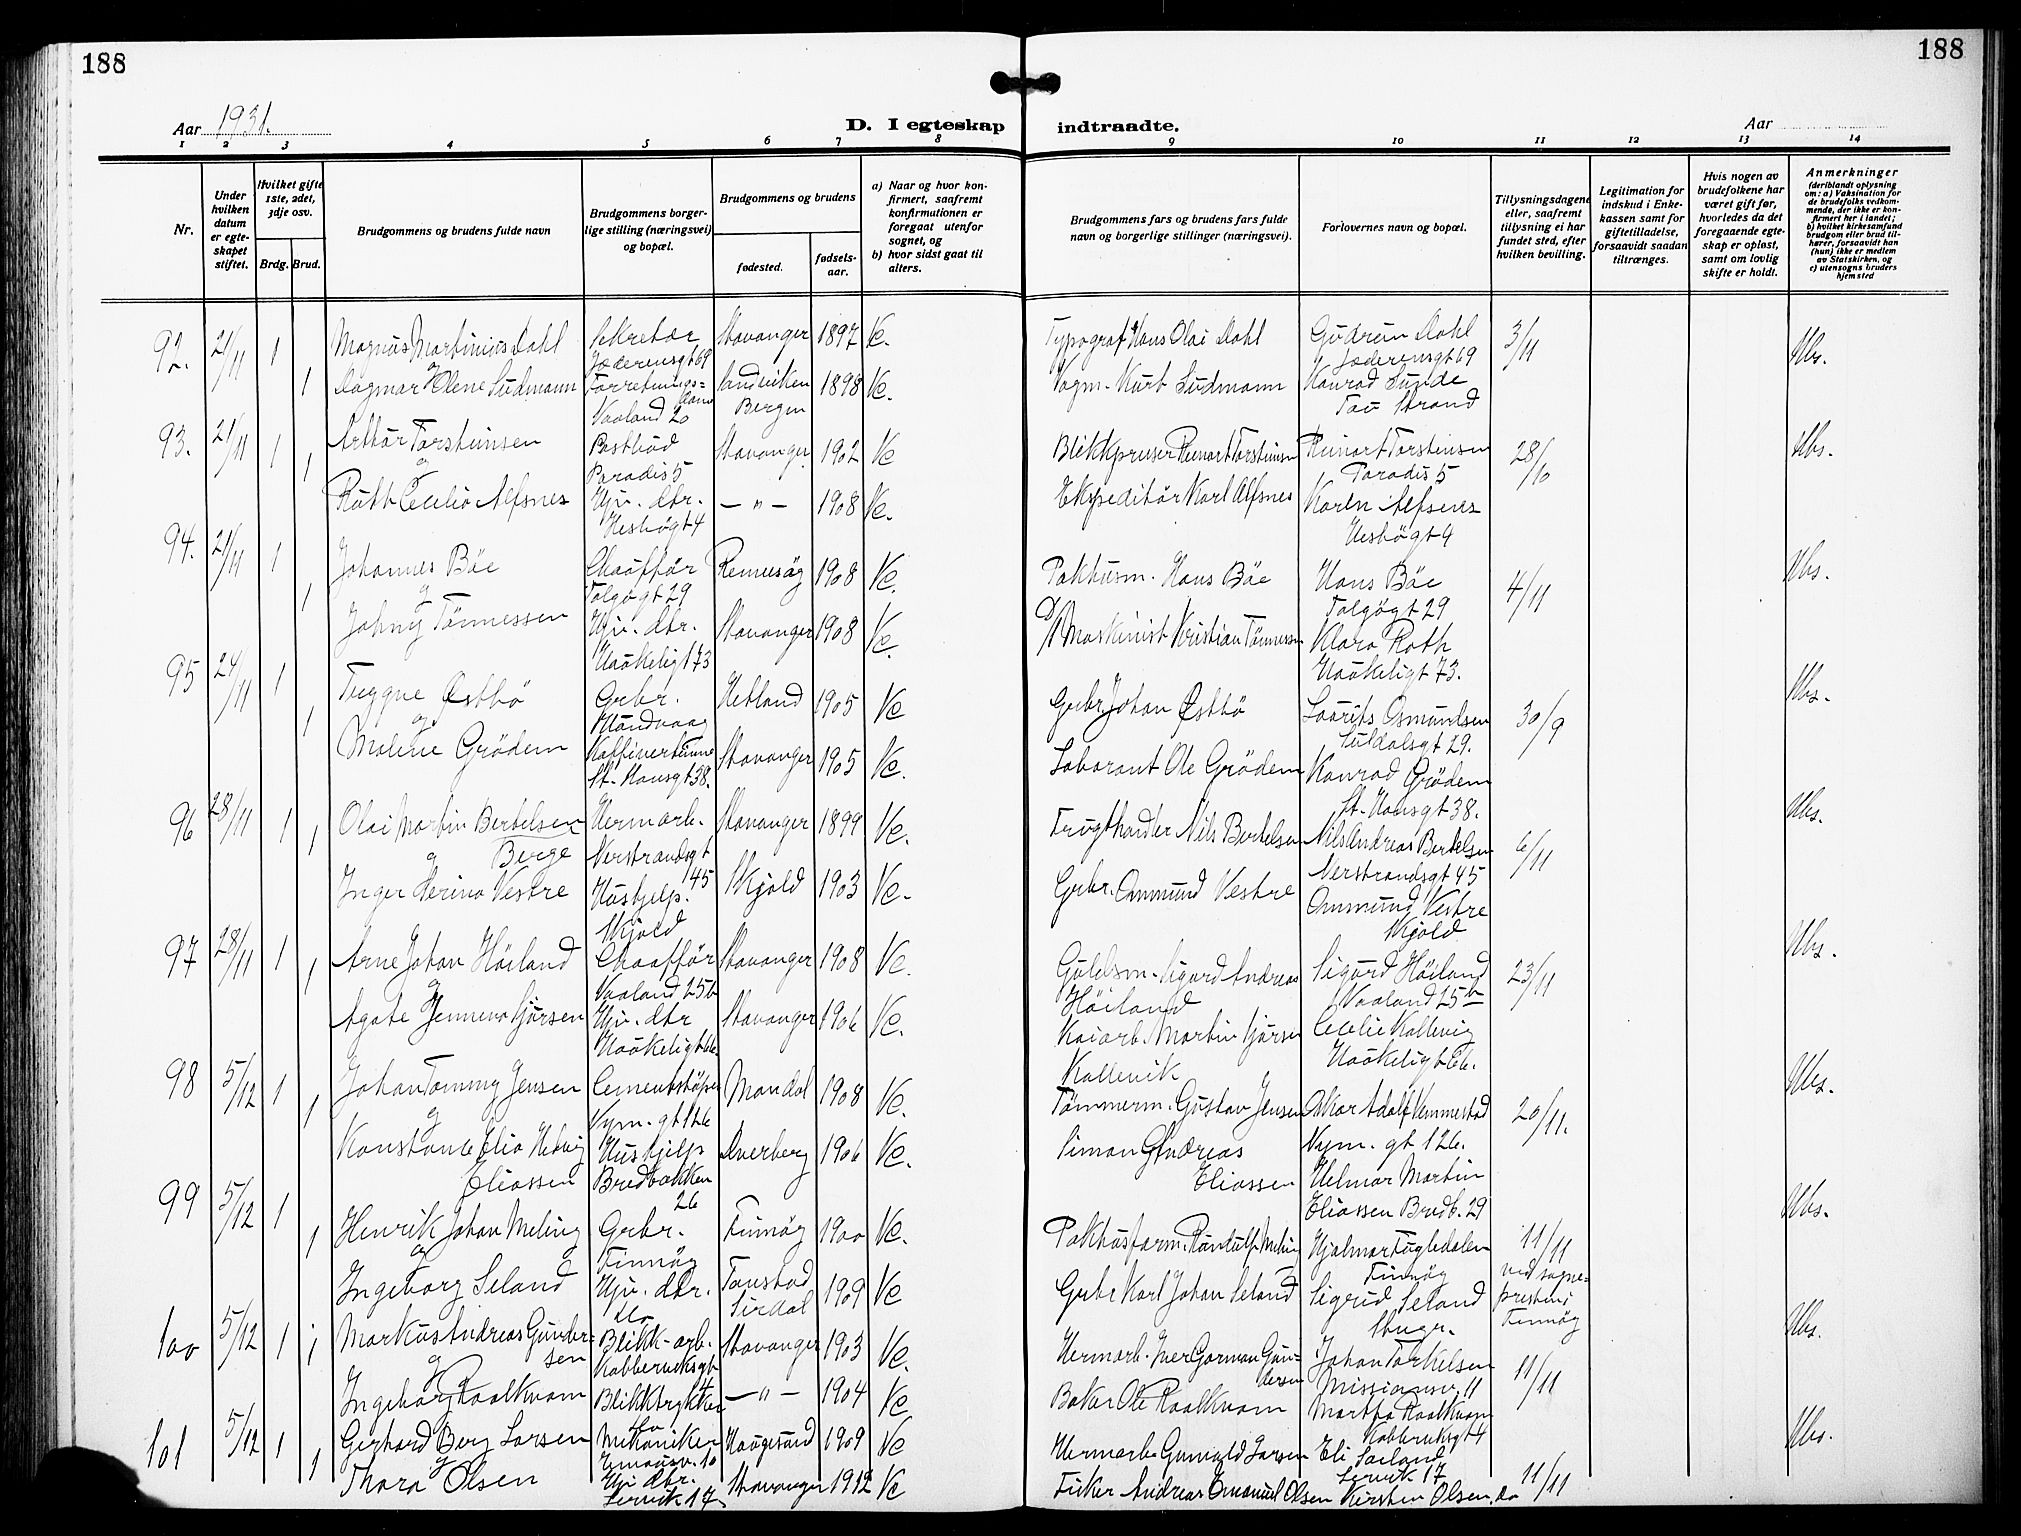 188
188
Aar 1931.
D. I egteskap
indtraadte.
Aar
1 2 3 4 5 6 7 8 9 10 11 12 13 14
Nr.
Under hvilken datum er egteskapet stiftet.
Hvilket gifte 1ste, 2det, 3dje osv.
Brdg. Brud.
Brudgommens og brudens fulde navn
Brudgommens borgerlige stilling (næringsvei) og bopæl.
Brudgommens og brudens
fødested. fødselsaar.
a) Naar og hvor konfirmert, saafremt konfirmationen er foregaat utenfor sognet, og
b) hvor sidst gaat til alters.
Brudgommens fars og brudens fars fulde navn og borgerlige stillinger (næringsvei).
Forlovernes navn og bopæl.
Tillysningsdagene eller, saafremt tillysning ei har fundet sted, efter hvilken bevilling.
Legitimation for indskud i Enkekassen samt for giftetilladelse, forsaavidt saadan tiltrænges.
Hvis nogen av brudefolkene har været gift før, hvorledes da det foregaaende egteskap er opløst, samt om lovlig skifte er holdt.
Anmerkninger (deriblandt oplysning om: a) Vaksination for de brudefolks vedkommende, der ikke er konfirmert her i landet; b) hvilket kirkesamfund brudgom eller brud tilhører, forsaavidt han (hun) ikke er medlem av Statskirken, og c) utensogns bruders hjemsted
92. 21/11 1 Magnus Martinius Dahl Sekretær Jæderensgt 69 Stavanger 1897 Ve. Typograf Hans Olai Dahl Gudrun Dahl Jæderensgt 69 3/11
og
1 Dagmar Olene Sudmann Forretningsdame Vaaland 20 Sandviken Bergen 1898 Ve. Vogm. Kurt Sudmann Konrad Sunde Tau Strand
93. 21/11 1 Arthur Torsteinsen Postbud Paradis 5 Stavanger 1902 Ve Blikkpresser Reinart Torsteinsen Reinart Torsteinsen Paradis 5 28/10
og
1 Ruth Cecilia Alfsnes Hjv. dtr. -"- 1908 Ve. Ekspeditör Karl Alfsnes Karen Alfsnes
94. 21/11 1 Johannes Böe Chaufför Talgögt 29 Rennesöy 1908 Ve. Pakhusm. Hans Böe Hans Böe Talgögt 29 4/11
og
1 Johny Tönnessen Hjv. dtr. Stavanger 1908 Ve. Maskinist Kristian Tönnessen Klara Roth Haukeligt 73.
95 24/11 1 Tryggve Østbö Grbr. Hundvaag Hetland 1905 Ve Grbr. Johan Østbö Laurits Osmundsen Suldalsgt 29. 30/9
og
1 Malene Grödem St. Hansgt 38. Stavanger 1905 Ve. Laborant Ole Grödem Konrad Grödem St. Hansgt 38.
96 28/11 1 Olai Martin Bertelsen Berge Hermarb. Nerstrandsgt 45 Stavanger 1899 Ve. Frugthandler Nils Bertelsen Nils Andreas Bertelsen Nerstrandsgt 45 6/11
og
1 Inger Herina Vestre Hushjelp. Skjold Skjold 1903 Ve. Grbr. Ommund Vestre Ommund Vestre Skjold
97 28/11 1 Arne Johan Höiland Chaufför Vaaland 25b Stavanger 1908 Ve. Guldsm. Sigurd Andreas Höiland Sigurd Höiland Vaaland 25b 23/11
og
1 Agate Jennena Sjursen Hjv. dtr Stavanger 1906 Ve. Kaiarb. Martin Sjursen Kallevik Cecelie Kallevig Haukeligt 66.
98 5/12 1 Johan Tommy Jensen Cementstöper Nym. gt 126 Mandal 1908 Ve. Tömmerm. Gustav Jensen Oskar Adolf Vemmestad Nym. gt 126. 20/11.
og
1 Konstance Elia Hedvig Eliassen Hushjelp Bredbakken 26 Dverberg 1906 Ve. Simon Andreas Eliassen Helmar Martin Eliassen Bredb. 29
99 5/12 1 Henrik Johan Meling Grbr. Finnöy Finnöy 1900 Ve. Randulf Meling Hjalmar Fugledalen Finnöy 11/11 ved sognepresten i Finnöy
og
1 Ingeborg Seland Hjv. dtr. do Tonstad Sirdal 1909 Ve Grbr Karl Johan Seland Sigrid Seland
100 5/12 1 1 Markus Andreas Gundersen Blikk-arb. Stavanger 1903 Ve. Hermarb. Iver Gorman Gundersen Johan Torkelsen Missionsv. 11 11/11
og
Ingeborg Raalkvam Blikktrykker -"- 1904 Ve Baker Ole Raalkvam Martha Raalkvam
101 5/12 1 Gerhard Berg Larsen Mekaniker Emausv. 10 Haugesund 1909 Ve Hermarb. Gunvald Larsen Eli Larsen
og
1 Thora Olsen Hjv. dtr. Lervik 17 Stavanger 1912 Ve Fisker Andreas Emanuel Olsen Kirsten Olsen do 11/11